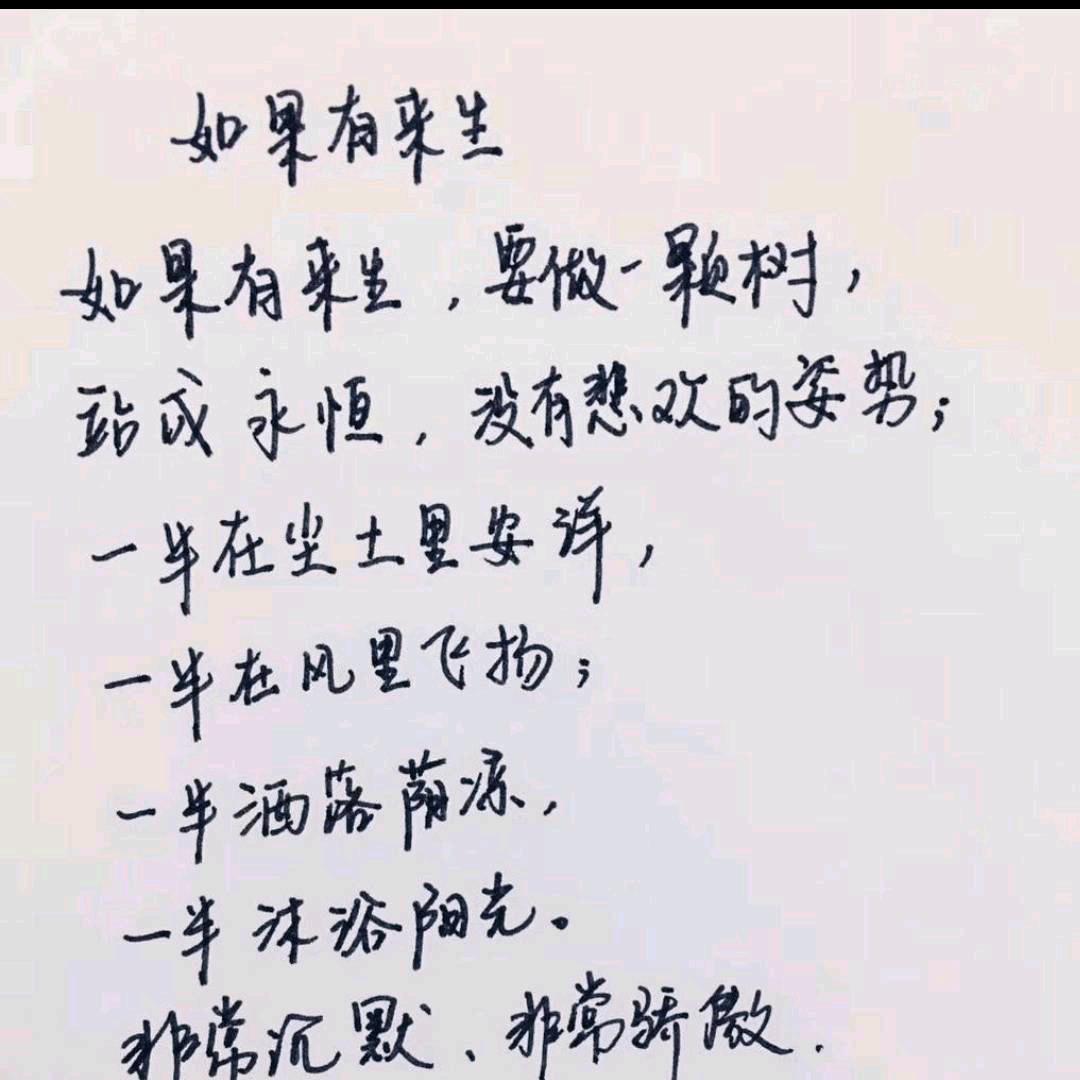 如果有来生
如果有来生，要做一颗树，
站成永恒，没有悲欢的姿势；
一半在尘土里安详，
一半在风里飞扬；
一半洒落荫凉，
一半沐浴阳光。
非常沉默、非常骄傲.